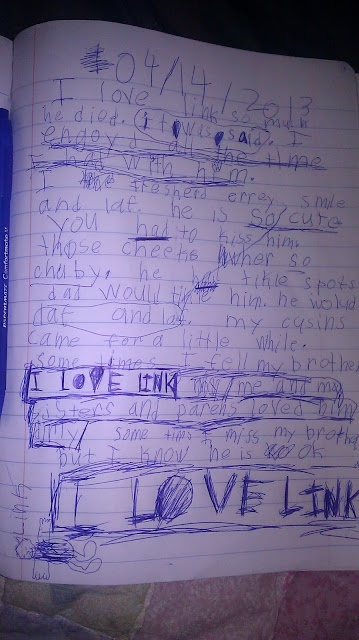 04/14/2013
I love Link so much
he died. it was said. I
enjoyd all the time
I had with him.
I tresherd errey smile
and laf. he is so cute
you had to kiss him.
those cheeks wher so
chuby. he tikle spots
dad would him. he would
and laf. my cusins
came for a little while.
some times I fell my brother
I LOVE LINK me and my
sisters and parens loved him
some tims I miss my brother
but I know he is ok
I LOVE LINK
PAPERMATE ComfortMate